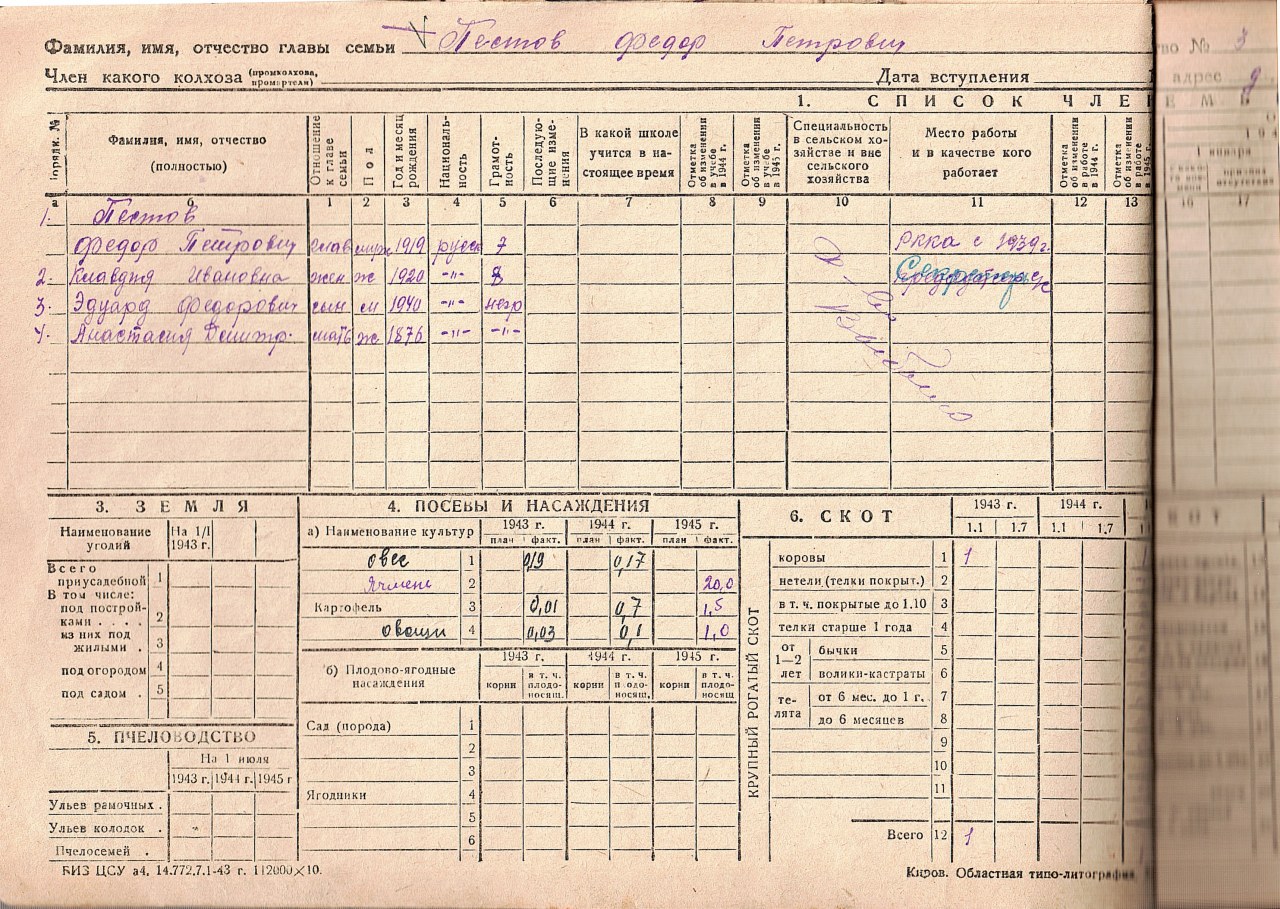 Фамилия, имя, отчество главы семьи Пестов Федор Петрович
во № 3
Член какого колхоза (промколхоза, промартели) Дата вступления
адрес д
1. СПИСОК ЧЛЕ
Порядк. № Фамилия, имя, отчество (полностью) Отношение к главе семьи Пол Год и месяц рождения Националь-ность Грамот-ность Последую-щие изме-нения В какой школе учится в на-стоящее время Отметка об изменении в учебе в 1944 г. Отметка об изменении в учебе в 1945 г. Специальность в сельском хо-зяйстве и вне сельского хозяйства Место работы и в качестве кого работает Отметка об изменении в работе в 1944 г. Отметка об изменении в работе в 1945 г.
1 января
а б 1 2 3 4 5 6 7 8 9 10 11 12 13 16 17
1. Пестов
Федор Петрович глав муж 1919 руск 7 РККА с 1939 г.
2. Клавдия Ивановна жен ж 1920 -"- 8
3. Эдуард Федорович сын м 1940 -"- негр
4. Анастасия Дмитр. мать ж 1876 -"- -"-
3. ЗЕМЛЯ
Наименование угодий На 1/I 1943 г.
Всего приусадебной 1
В том числе:
под построй-ками . . . . 2
из них под жилыми . 3
под огородом 4
под садом . 5
5. ПЧЕЛОВОДСТВО
На 1 июля
1943 г. 1944 г. 1945 г
Ульев рамочных .
Ульев колодок .
Пчелосемей .
4. ПОСЕВЫ И НАСАЖДЕНИЯ
а) Наименование культур 1943 г. 1944 г. 1945 г.
план факт. план факт. план факт.
овес 1 0,19 0,17
Ячмень 2 20,0
Картофель 3 0,01 0,7 1,5
овощи 4 0,03 0,1 1,0
б) Плодово-ягодные насаждения 1943 г. 1944 г. 1945 г.
корни в т. ч. плодо-носящ. корни в т. ч. плодо-носящ. корни в т. ч. плодо-носящ
Сад (порода) 1
2
3
Ягодники 4
5
6
6. СКОТ 1943 г. 1944 г.
1.1 1.7 1.1 1.7
КРУПНЫЙ РОГАТЫЙ СКОТ
коровы 1 1
нетели (телки покрыт.) 2
в т. ч. покрытые до 1.10 3
телки старше 1 года 4
от 1—2 лет бычки 5
волики-кастраты 6
те-лята от 6 мес. до 1 г. 7
до 6 месяцев 8
9
10
11
Всего 12 1
БИЗ ЦСУ а4. 14.772.7.1-43 г. 112000×10.
Киров. Областная типо-литография